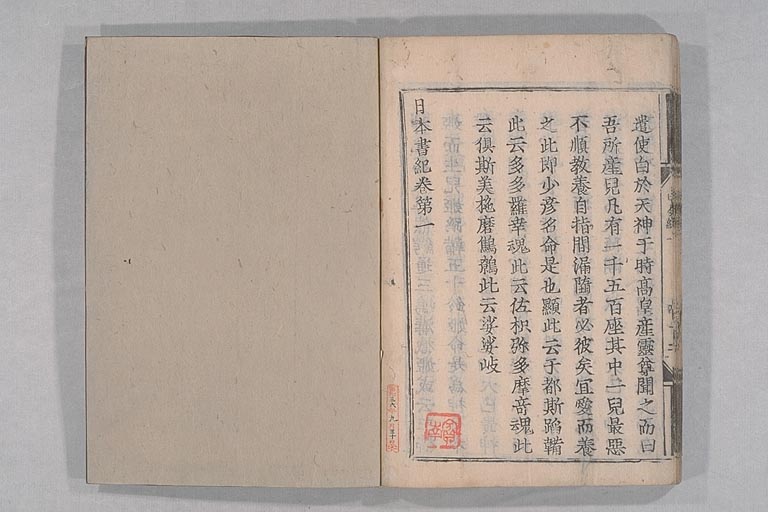 遣使白於天神于時髙皇産靈尊聞之而曰
吾所産兒凡有一千五百座其中一兒最悪
不順教養自指間漏隨者必彼矣冝愛而養
之此即少彦名命是也顯此云于都斯蹈鞴
此云多多羅幸魂此云佐枳弥多摩竒魂此
云倶斯美拕磨鷦鷯此云娑娑岐
日本書紀巻第一